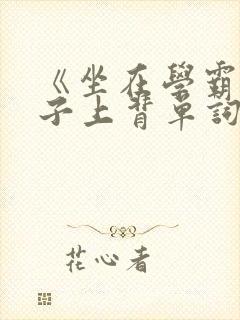 《坐在學霸
子上背單詞
花心者